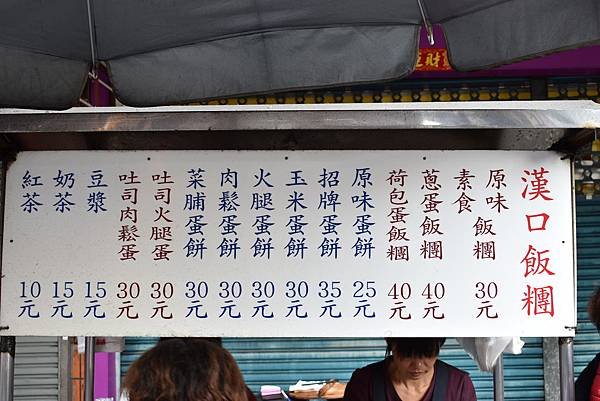 漢口飯糰
原味飯糰 30元
素食
蔥蛋飯糰 40元
荷包蛋飯糰 40元
原味蛋餅 25元
招牌蛋餅 35元
玉米蛋餅 30元
火腿蛋餅 30元
肉鬆蛋餅 30元
菜脯蛋餅 30元
吐司火腿蛋 30元
吐司肉鬆蛋 30元
豆漿 15元
奶茶 15元
紅茶 10元